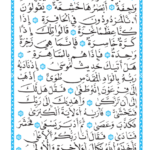 وَاجِفَةٌ أَبْصَارُهَا خَاشِعَةٌ يَقُولُونَ
أَءِنَّا لَمَرْدُودُونَ فِي الْحَافِرَةِ أَءِذَا
كُنَّا عِظَامًا نَّخِرَةً قَالُوا تِلْكَ إِذًا
كَرَّةٌ خَاسِرَةٌ فَإِنَّمَا هِيَ زَجْرَةٌ
وَاحِدَةٌ فَإِذَا هُم بِالسَّاهِرَةِ
هَلْ أَتَاكَ حَدِيثُ مُوسَى إِذْ نَادَاهُ
رَبُّهُ بِالْوَادِ الْمُقَدَّسِ طُوًى اذْهَبْ
إِلَى فِرْعَوْنَ إِنَّهُ طَغَى فَقُلْ هَل لَّكَ
إِلَى أَن تَزَكَّى وَأَهْدِيَكَ إِلَى رَبِّكَ
فَتَخْشَى فَأَرَاهُ الْآيَةَ الْكُبْرَى